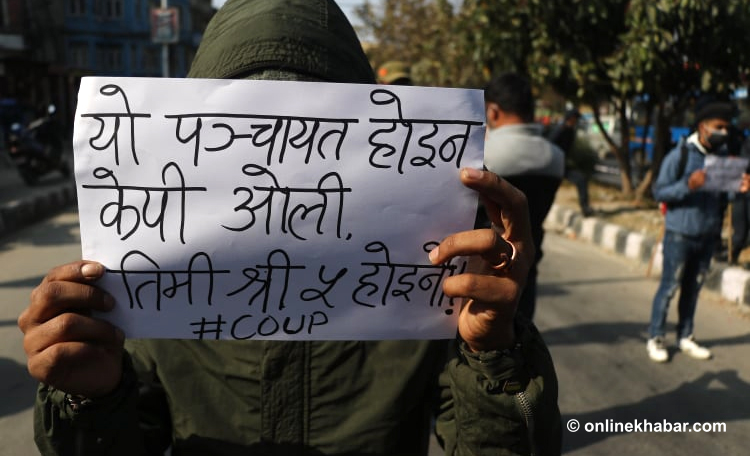 यो पञ्चायत होइन
केपी ओली,
तिमी श्री ५ होइनौ!!
#COUP
© onlinekhabar.com